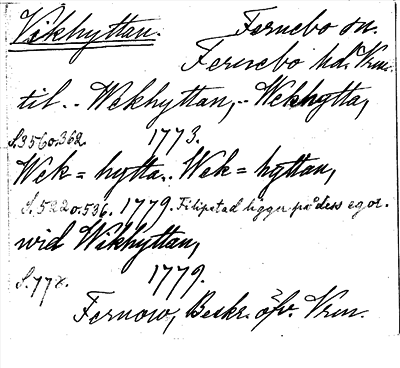 Vikhyttan. Fernebo sn.
Fernebo hd. Vrm.
til.. Wekhyttan,.. Wekhytta,
S. 356 o. 362. 1773.
Wek=hytta.. Wek=hyttan,
S. 522 o. 536. 1779. Filipstad ligger på dess egor.
vid Wikhyttan,
S. 778. 1779.
Fernow, Beskr. öfv. Vrm.